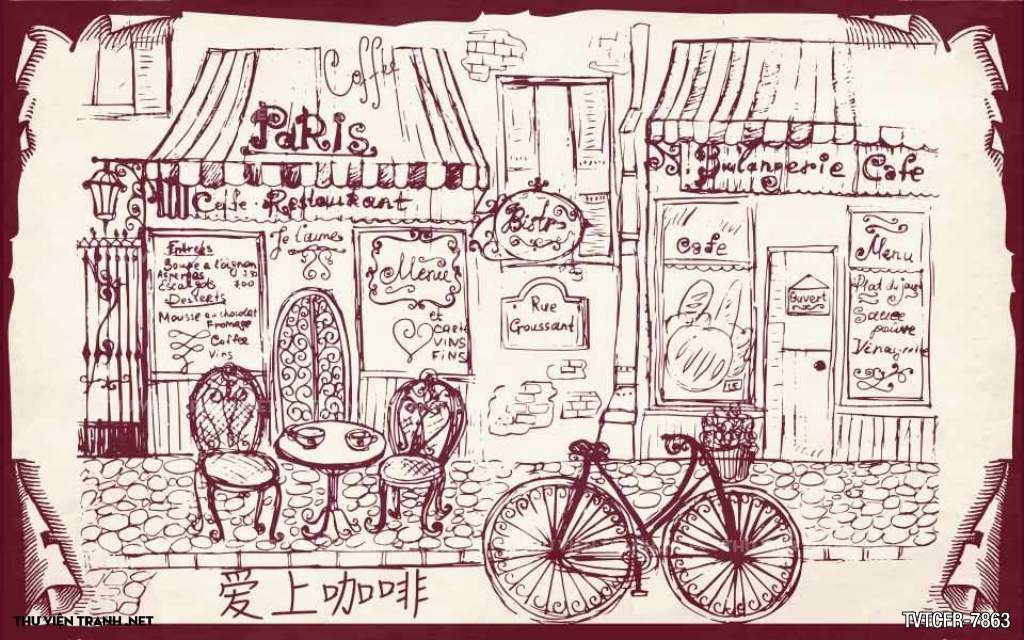 Coffee
PaRis
Cafe - Restaurant
Je t'aimes
Entrees
Soupe a l'oignon
Asperges 3 50
Escargots 300
Desserts
Mousse au chocolat
Fromage
Coffee
Vins
Menue
et
CARTE
VINS
FiNS
Bistro
Rue
Groussant
Boulangerie Cafe
Cafe
Ouvert
Menu
Plat du jour
Sauce
poivre
Vinaigrette
爱上咖啡
THƯ VIỆN TRANH .NET
TVTCFR-7863